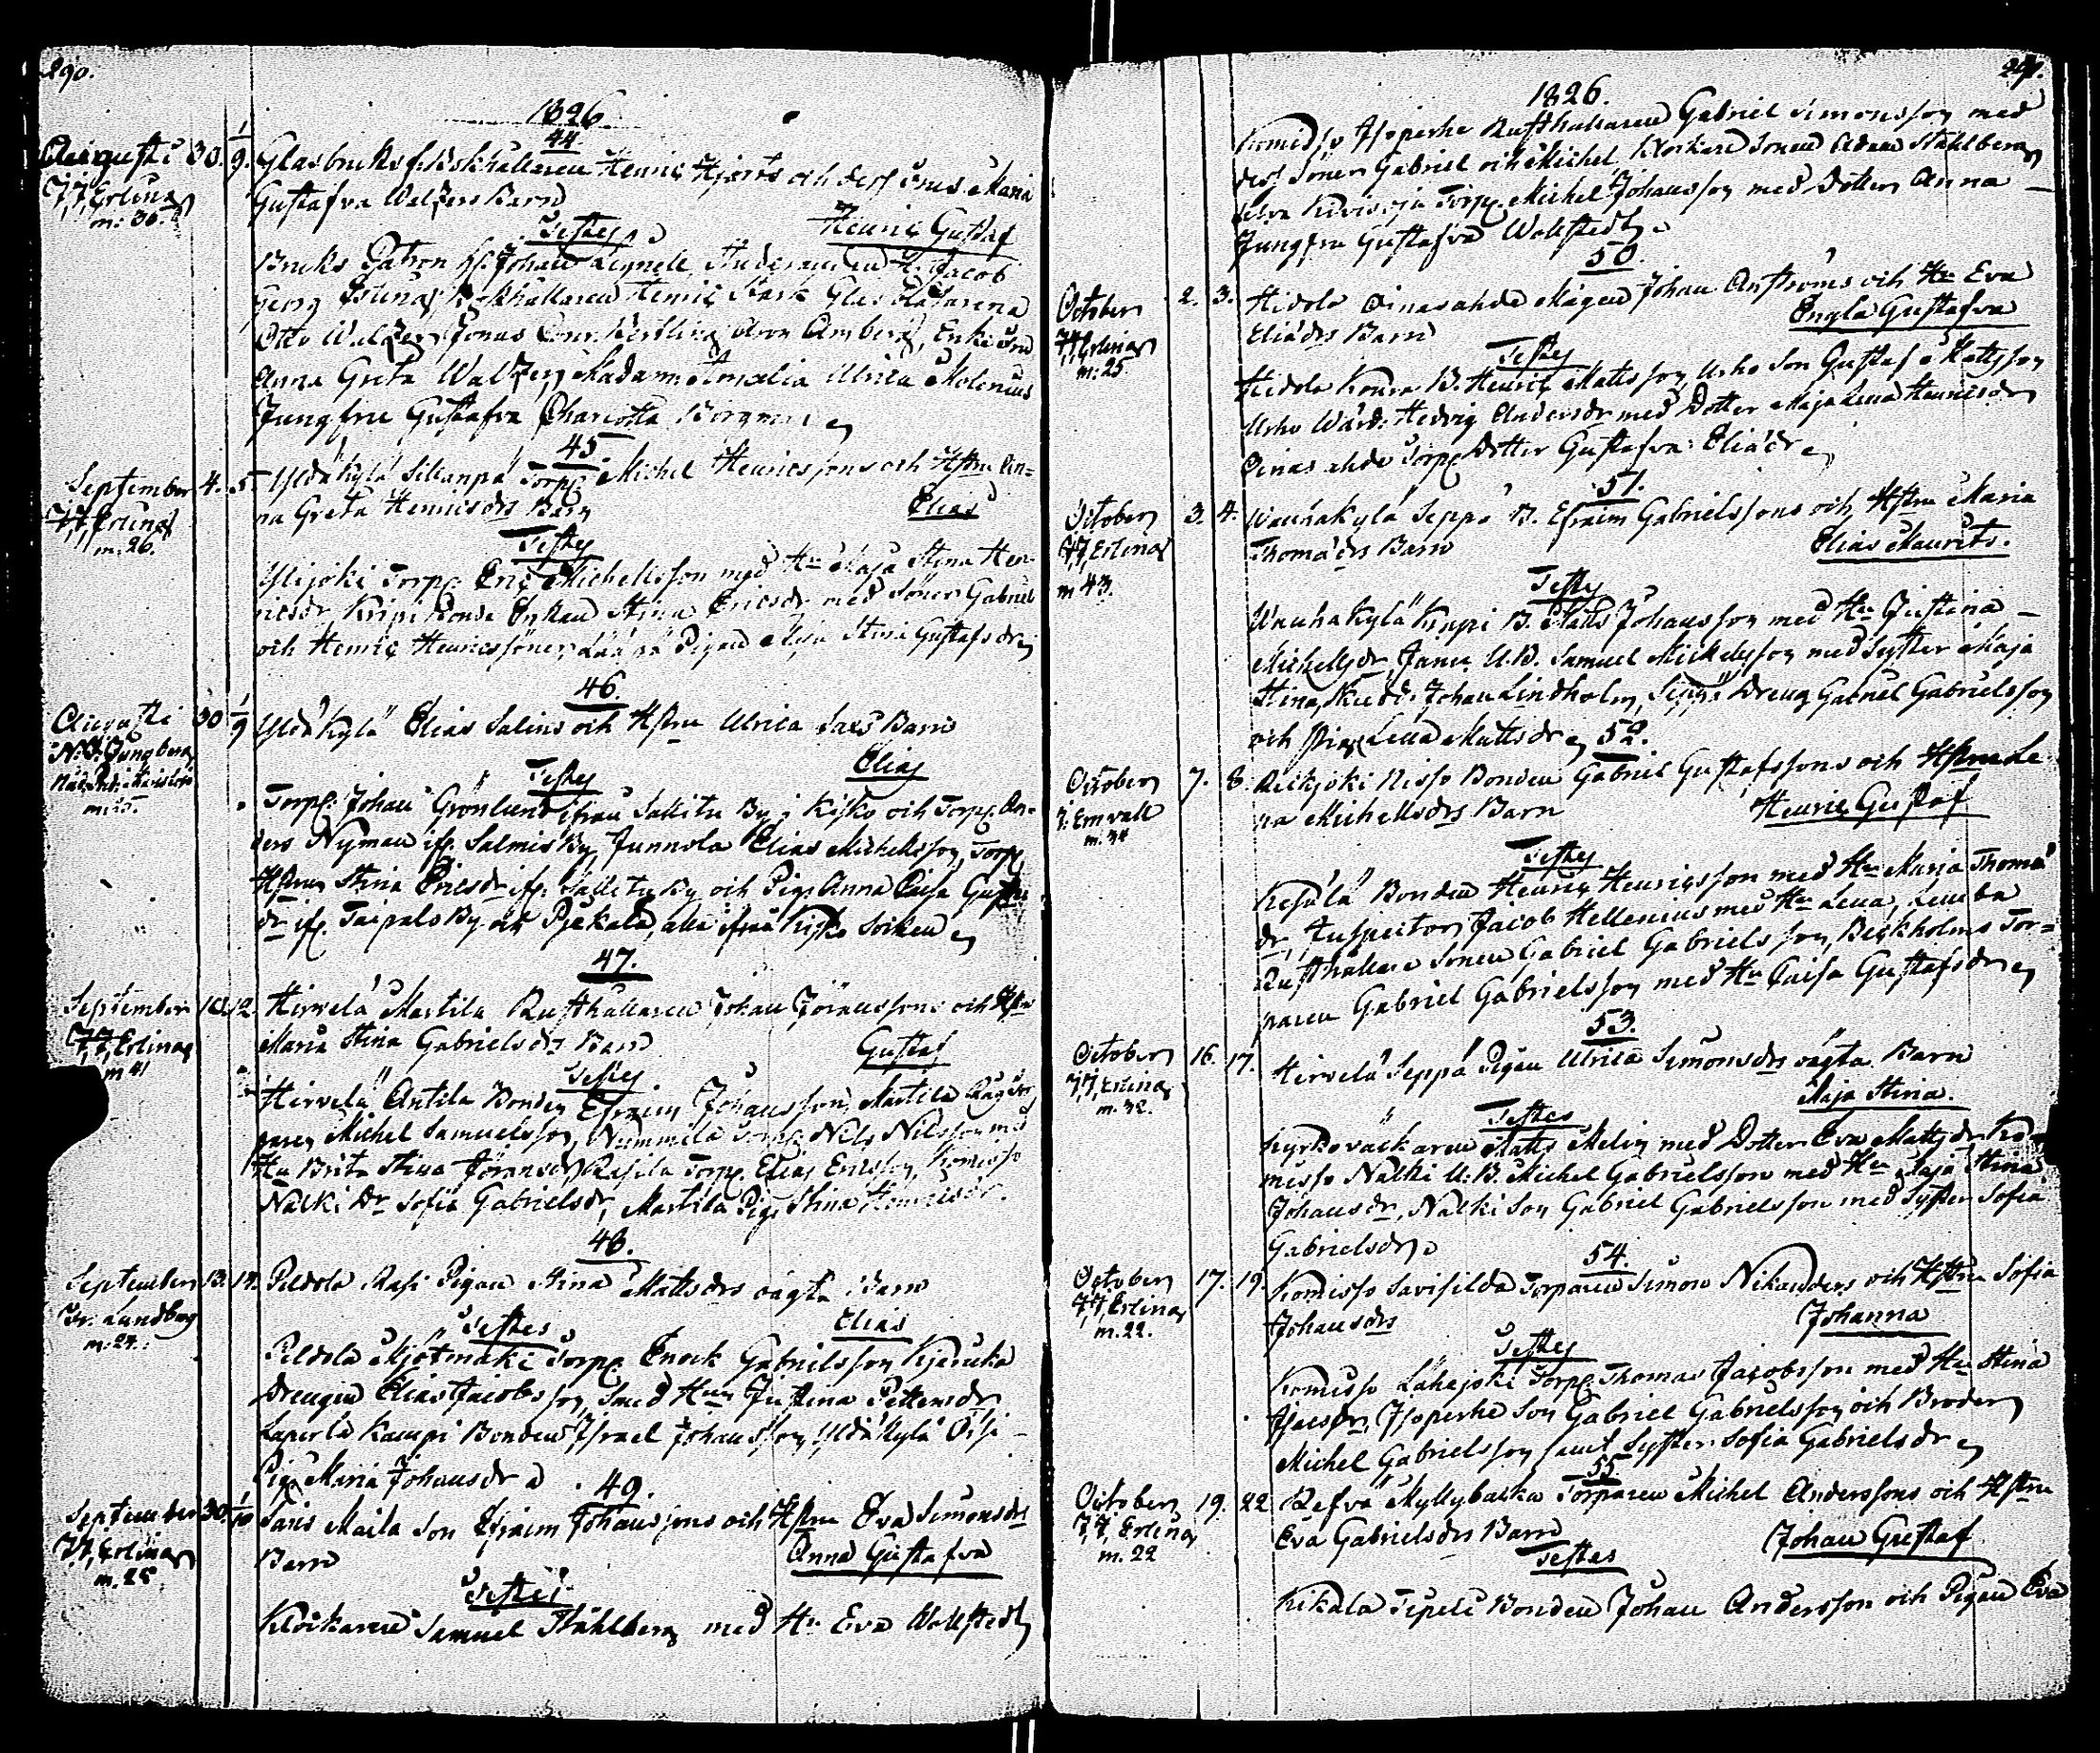 290.
1826.
44.
Augusti 30. 1/9. Glasbruks f. Bokhållaren Henric Hjorts och dess Frus Maria
J.J. Erling Gustafva Walzers Barn
m: 36. Testes Henric Gustaf
Bruks Patron H. Johan Lignell, Studeranden H. Jacob
Georg Erling, Bokhållaren Henric Stark Glas Blåsarena
Otto Walzer, Jonas Kertling Aron Amberg, Enke Fru
Anna Greta Walzer, Madam Amalia Ulrica Molenius
Jungfru Gustafva Charlotta
45.
September 4. 5. Yldäkylä Sillanpä Torp. Michel Henricssons och Hstru An-
J.J. Erling na Greta Henricsdrs Barn Elias
m. 26. Testes
Ylijöki Torp. Eric Michelsson med Hu Maja Stina Hen-
ricsdr, Enkan Stina Ericsdr med Söner Gabriel
och Henric Henricssöner, Pigan Maja Stina Gustafsdr
46.
Augusti 30 1/9 Yldäkylä Elias Salins och Hstru Ulrica Barn
N. J. Ljungberg Elias
m: 25. Testes
Torp. Johan Grönlund ifrån Sallitu By i Kisko och Torp. An-
ders Nyman ifr. Salmis By, Junnola Elias Michelsson, Torp.
Hstrun Stina Ericsdr ifr. Sallitu By och Pig. Anna Caisa Gustafs
dr ifr. Taipals By och alla ifrån Kisko Socken
47.
September 10. 12. Hirvelä Martila Rusthållaren Johan Jöranssons och Hstru
J.J. Erling Maria Stina Gabrielsdrs Barn Gustaf
m 41 Testes
Hirvelä Antila Bonden Efraim Johansson, Martila
Michel Samuelsson, Nummela Torp. Nils Nilsson med
Hu Brita Stina Jöransdr, Torp. Elias Ericsson, Komisso
Nälki Dr Sofia Gabrielsdr, Martila Pig. Stina Henricsdr.
48.
September 13. 14. Peldola Pigan Stina Mattsdrs oägta Barn
Fr. Lundberg Testes Elias
m: 24. Peldola Mjötmäki Torp. Enock Gabrielsson
Drengen Elias Jacobsson, Smed Hun Justina Pettersdr
Laperla Kampi Bonden Israel Johansson, Yldäkylä
Pig. Maria Johansdr
49.
September 30. 1/10 Saris Maila Son Efraim Johanssons och Hstru Eva Simonsdrs
J.J. Erling Barn Anna Gustafva
m. 25. Testes
Klockaren Samuel Ståhlberg med Hu Eva Wallstedt
291.
1826.
Komisso Isoperhe Rusthållaren Gabriel Simonsson med
dess Söner Gabriel och Michel, Klockare Sonen Adam Ståhlberg
Kivioja Torp. Michel Johansson med Dotter Anna
Jungfru Gustafva Wallstedt
50.
October 2. 3. Hidola Oinasahde Mågen Johan Anstroms och Hu Eva
J.J. Erling Eliædrs Barn Engla Gustafva
m: 25. Testes
Hidola Kouva B. Henric Mattsson, Urho Son Gustaf Mattsson
Urho Wärd. Hedvig Andersdr med Dotter Maja Lena Henricsdr
Oinasahde Torp. Dotter Gustafva Eliædr
51.
October 3. 4. Wanhakylä Seppä B. Efraim Gabrielssons och Hstru Maria
J.J. Erling Thomædrs Barn Elias Maurits.
m 43. Testes
Wanhakylä Knipi B. Matts Johansson med Hu Justina
Michelsdr, U.B. Samuel Michelsson med Syster Maja
Stina, Johan Lindholm, Seppä Dreng Gabriel Gabrielsson
och Pig. Lena Mattsdr
52.
October 7. 8. Reikjoki Nisso Bonden Gabriel Gustafssons och Hstru Le-
J. Emvall na Michelsdrs Barn Henric Gustaf
m. 34 Testes
Kesälä Bonden Henric Henricsson med Hu Maria Thomæ
dr, Inspector Jacob Hellenius med Hu Lena,
Rusthållare Sonen Gabriel Gabrielsson, Björkholms Tor=
paren Gabriel Gabrielsson med Hu Caisa Gustafsdr
53.
October 16. 17. Hirvelä Seppä Pigan Ulrica Simonsdrs oägta Barn
J.J. Erling Maja Stina.
m. 32. Testes
Kyrkoväckaren Matts Melin med Dotter Eva Mattsdr Ko-
misso Nälki U.B. Michel Gabrielsson med Hu Maja Stina
Johansdr, Nälki Son Gabriel Gabrielsson med Syster Sofia
Gabrielsdr
54.
October 17. 19. Komisso Savisilda Torparen Simon Nikanders och Hstru Sofia
J.J. Erling Johansdrs Johanna
m. 22. Testes
Komisso Torp. Thomas Jacobsson med Hu Stina
Isacsdr, Isoperhe Son Gabriel Gabrielsson och Broder
Michel Gabrielsson samt Syster Sofia Gabrielsdr
55
October 19. 22 Refvä Myllybacka Torparen Michel Anderssons och Hstru
J.J. Erling Eva Gabrielsdrs Barn Johan Gustaf
m. 22 Testes
Kikala Bonden Johan Andersson och Pigan Eva